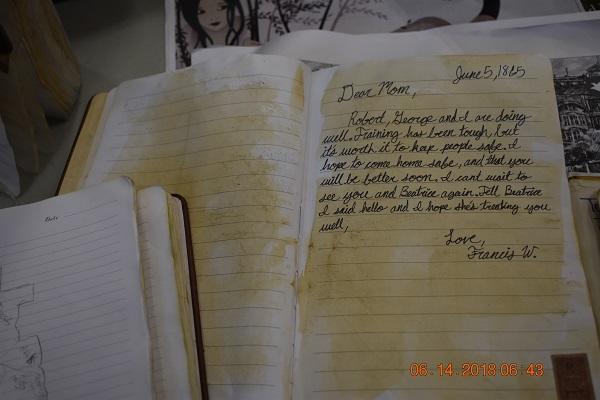 June 5, 1865
Dear Mom,
Robert, George and I are doing
well. Training has been tough, but
it's worth it to keep people safe. I
hope to come home safe, and that you
will be better soon. I cant wait to
see you and Beatrice again. Tell Beatrice
I said hello and I hope she's treating you
well,
Love,
Francis W.
06.14.2018 06:43